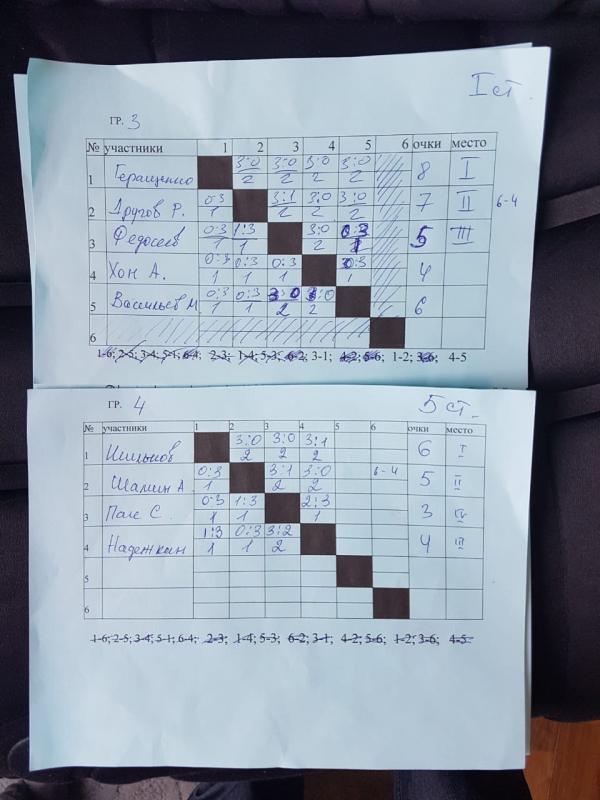 I ст
ГР. 3
№ участники 1 2 3 4 5 6 очки место
1 Геращенко 3:0 3:0 3:0 3:0 8 I
2 2 2 2
2 Другов Р. 0:3 3:1 3:0 3:0 7 II 6-4
1 2 2 2
3 Федосеев 0:3 1:3 3:0 0:3 5 III
1 1 2 1
4 Хон А. 0:3 0:3 0:3 0:3 4
1 1 1 1
5 Васильев М 0:3 0:3 3:0 3:0 6
1 1 2 2
6
1-6; 2-5; 3-4; 5-1; 6-4; 2-3; 1-4; 5-3; 6-2; 3-1; 4-2; 5-6; 1-2; 3-6; 4-5
ГР. 4 5 ст.
№ участники 1 2 3 4 5 6 очки место
1 3:0 3:0 3:1 6 I
2 2 2
2 Шалин А 0:3 3:1 3:0 6-4 5 II
1 2 2
3 Пак С. 0:3 1:3 2:3 3 IV
1 1 1
4 Надежкин 1:3 0:3 3:2 4 III
1 1 2
5
6
1-6; 2-5; 3-4; 5-1; 6-4; 2-3; 1-4; 5-3; 6-2; 3-1; 4-2; 5-6; 1-2; 3-6; 4-5